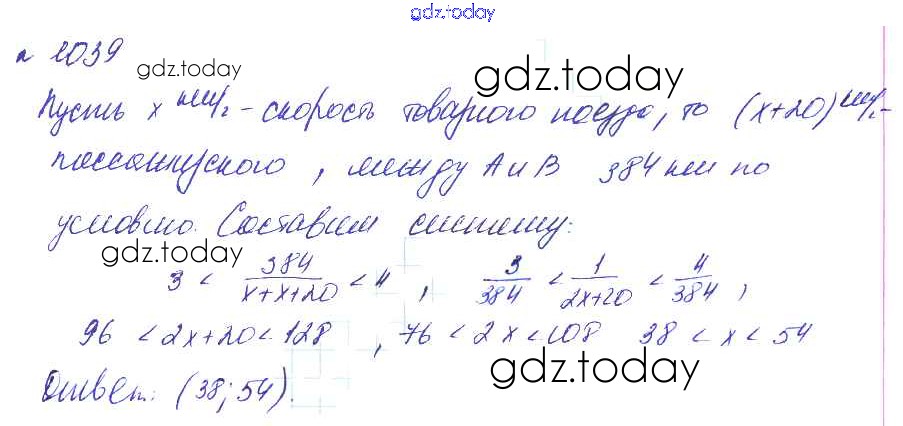 gdz.today
n 1039
gdz.today
gdz.today
Пусть x км/г - скорость товарного поезда, то (x+20) км/г -
пассажирского, между A и B 384 км по
условию. Составим систему:
gdz.today
3 < 384/(x+x+20) < 4, 3/384 < 1/(2x+20) < 4/384,
96 < 2x+20 < 128, 76 < 2x < 108 38 < x < 54
Ответ: (38; 54).
gdz.today